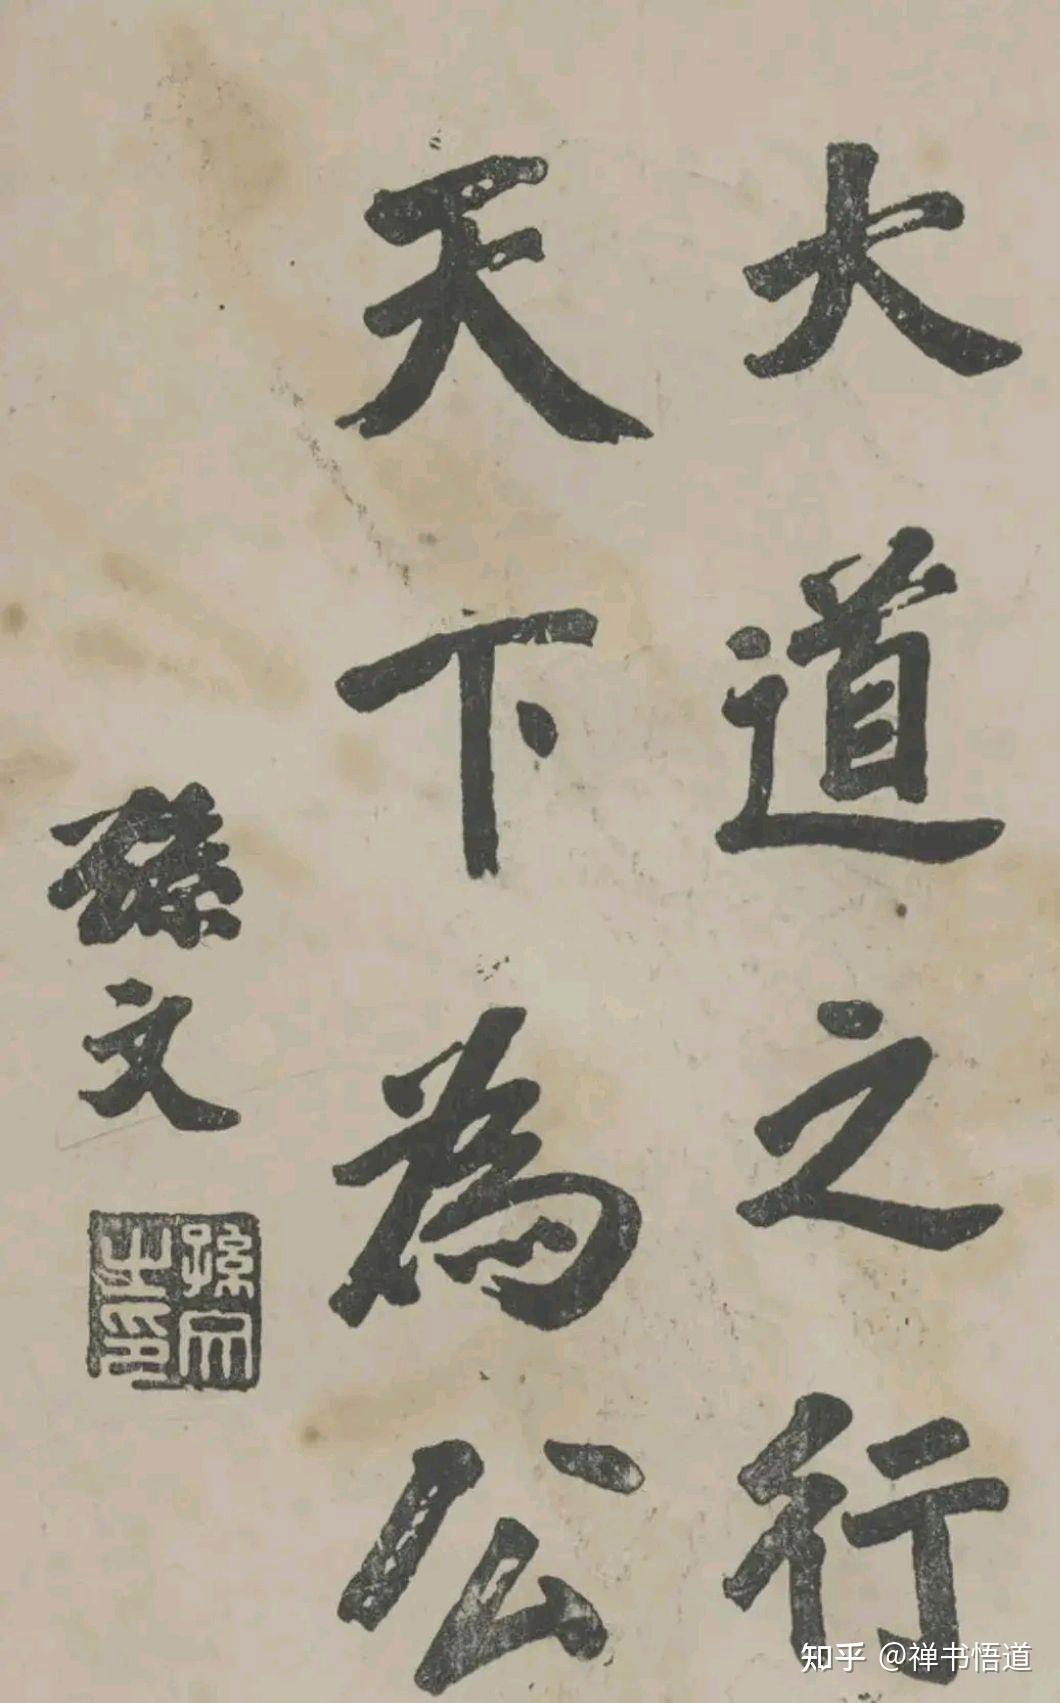 大道之行
天下為公
孫文
孫文之印
知乎 @禅书悟道